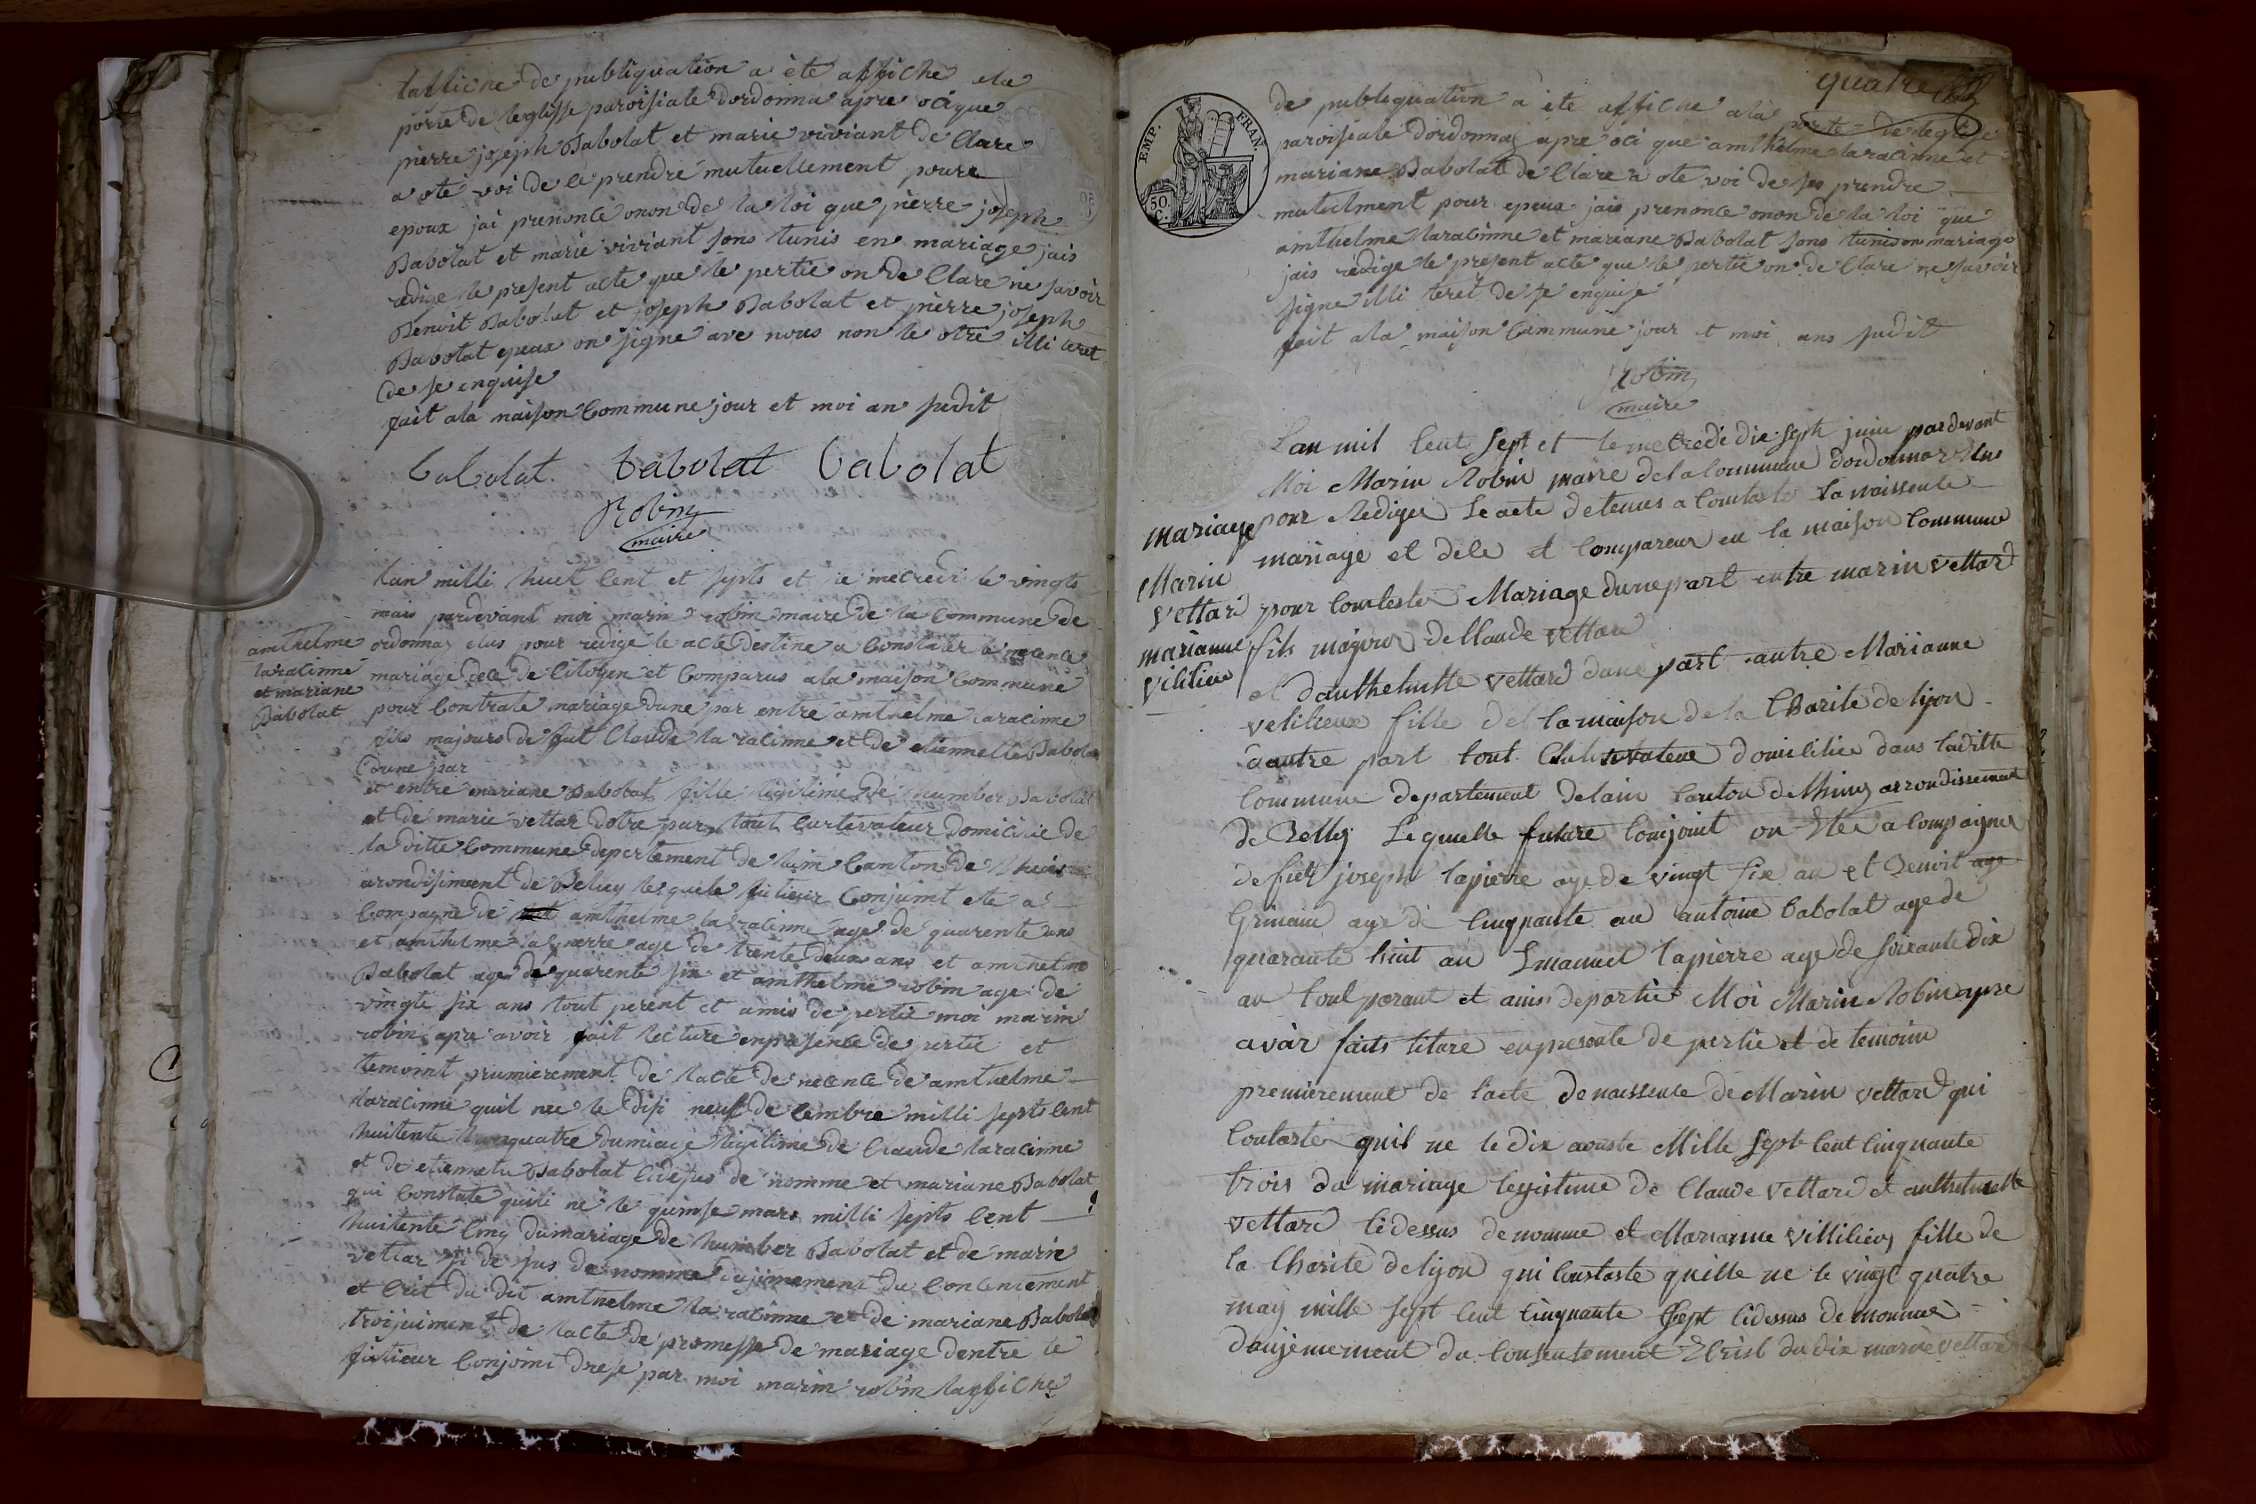 laffiche de publiquation a ètè affiche ala
porte de leglisse paroisiale Dordonna apre oci que
pierre joseph Babolat et marie viviant de Clare
a ote voi de ce prendre mutuellement poure
epoux jai prenonce onon de la loi que pierre joseph
Babolat et marie viviant sons tunis en mariage jais
redige le present acte que le pertie on de Clare ne savoir
Benoit Babolat et joseph Babolat et pierre joseph
Babolat epeux on signe ave nous non le otre illi teret
de se enquise
fait ala maison Commune jour et moi an sudit
babolat babolat babolat
Robin
maire
lan milli huet cent et septs et le mecredi le vingts
mais pardevant moi marin robin maire de la commune de
ordonnaz elus pour redige le acte destine a Constater le necence
mariage dece de Citoyen et Comparus ala maison Commune
pour Contrate mariage dune par entre amthelme laracinne
fils majeurs de fut Claude la racinne et de etiennette Babolat
dune par
et entre mariane Babolat fille legitime de humber Babolat
et de marie vettar dotre par tout Curtevateur Domicilie de
la ditte Commune depertement de lain Canton de lhuis
arondisiment de Beluy lequele futieur Conjoint ete a
Compagne de amthelme la racinne age de quarente ans
et amthelme la pierre age de trente deux ans et amthelme
Babolat age de quarente six et amthelme robin age de
vingte six ans tout perent et amis de pertie moi marin
robin apre avoir fait lecture enpresence de pertie et
temoint prumierement de lacte de necence de amthelme
laracinne quil nee le disi neuf de cembre milli septs cent
huitente quatre dumiage legitime de Claude laracinne
et de etiennete Babolat cidesus de nomme et mariane Babolat
qui Constate quili ne le quinse mars milli septs cent
huitente cinq dumariage de humber Babolat et de marie
vettar si de sus de nomme dujimement du Concentement
et Crit du dit amthelme la racinne et de mariane Babolat
troisjuiment de lacte de promesse de mariage dentre le
futieur Conjoint drese par moi marin robin laffiche
amthelme
laracinne
et mariane
Babolat
quatre
EMP. FRAN.
50 C.
de publiquation a ète affiche ala porte de leglise
paroisiale Dordonnaz apre oci que amthelme laracinne et
mariane Babolat de Clare a ote voi de ses prendre
mutuelment pour epeux jais prenonce onon de la loi que
amthelme laracinne et mariane Babolat sons tunis en mariage
jais redige le present acte que le pertie on de Clare ne savoir
signe illi teret de se enquise
fait ala maison Commune jour et moi ans sudit
Robin
maire
Lan mil Cent sept et le mecredi dix seph juin pardevant
Moi Marin Robin maire de la Commune dordonnaz Elus
pour Rediger Le acte detenus a Contaste La naissente
mariage et dele et Compareux en la maison Commune
pour Conteste Mariage dunepart entre marin vettard
fils majeur de Claude Vettard
et danthelmette vettard dune part autre Marianne
velilieux fille del lamaison de la Charite de lyon
dautre part tout Cultivateur domicilie dans ladille
Commune departement delain Canton de lhuis arrondissement
de Belley Lequelle future Conjoint on Etee a Compaigne
de fiet joseph lapierre aye de vingt six an et Benoit age
Grinan aye de Cinquante an antoine babolat aye de
quarante huit an Emanuel lapierre aye de soixante dix
an toul parant et amis de partie Moi Marin Robin apre
avair faits litare en presente de pertie et de temoim
premierement de lacte de naissense de Marin vettard qui
Contaste quil ne le dix aouste Mille Sept Cent Cinquante
trois du mariage legistime de Claude Vettard et anthelmette
vettard Cidessus denomme et Marianne Villilieu fille de
la Charite de lyon qui Constaste quille ne le vingt quatre
may mille sept Cent Cinquante sept Cidessus de nommé
doujemement du Consentement Ecrist du dix marie vettard
mariage
Marin
Vettard
marianne
Vililieu